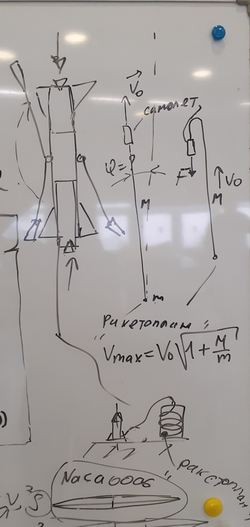 V₀
самолет
φ=
M
F
V₀
M
m
"Ракетоплан"
Vmax=V₀√1+M/m
"ракетоплан
Naca 0006